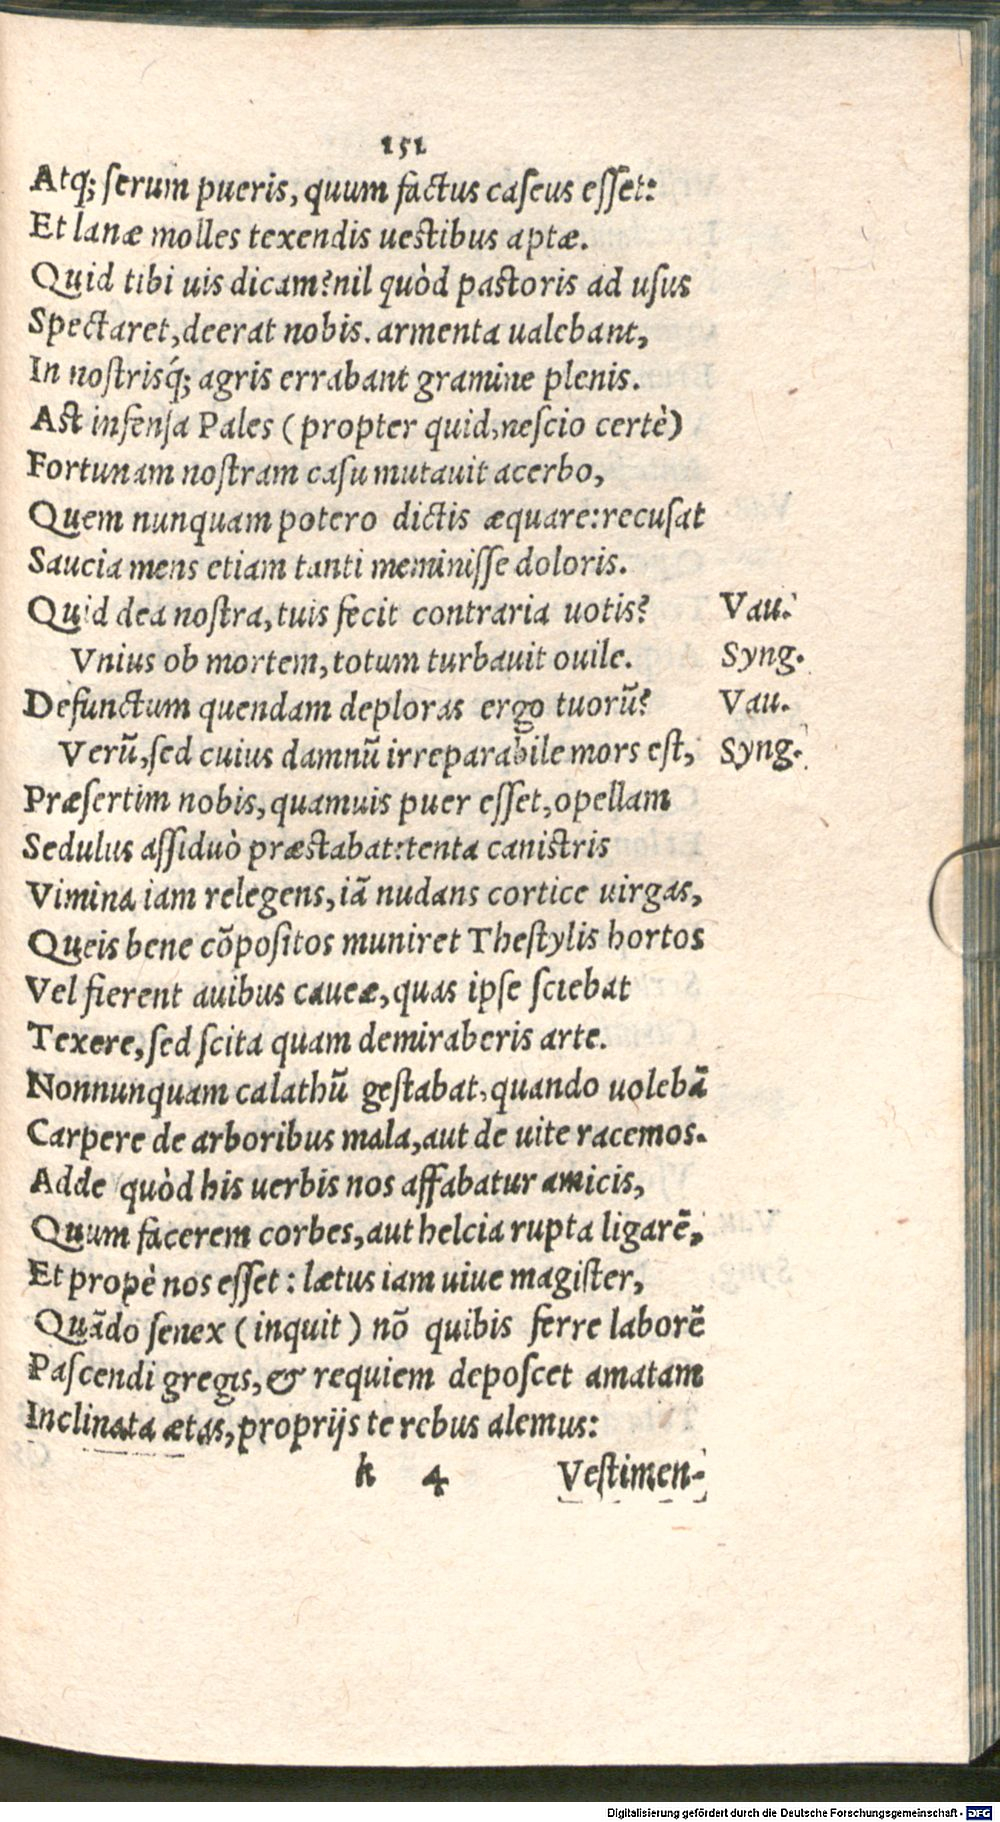 151
Atq; serum pueris, quum factus caseus esset:
Et lanæ molles texendis uestibus aptæ.
Quid tibi uis dicam? nil quòd pastoris ad usus
Spectaret, deerat nobis. armenta ualebant,
In nostrisq́; agris errabant gramine plenis.
Ast infensa Pales (propter quid, nescio certè)
Fortunam nostram casu mutauit acerbo,
Quem nunquam potero dictis æquare: recusat
Saucia mens etiam tanti meminisse doloris.
Quid dea nostra, tuis fecit contraria uotis? Vau.
Vnius ob mortem, totum turbauit ouile. Syng.
Defunctum quendam deploras ergo tuorũ? Vau.
Verũ, sed cuius damnũ irreparabile mors est, Syng.
Præsertim nobis, quamuis puer esset, opellam
Sedulus assiduò præstabat: tenta canistris
Vimina iam relegens, iã nudans cortice uirgas,
Queis bene cõpositos muniret Thestylis hortos
Vel fierent auibus caueæ, quas ipse sciebat
Texere, sed scita quam demiraberis arte.
Nonnunquam calathũ gestabat, quando uolebã
Carpere de arboribus mala, aut de uite racemos.
Adde quòd his uerbis nos affabatur amicis,
Quum facerem corbes, aut helcia rupta ligarẽ,
Et propè nos esset: lætus iam uiue magister,
Quãdo senex (inquit) nõ quibis ferre laborẽ
Pascendi gregis, & requiem deposcet amatam
Inclinata ætas, proprijs te rebus alemus:
k 4 Vestimen-
Digitalisierung gefördert durch die Deutsche Forschungsgemeinschaft - DFG